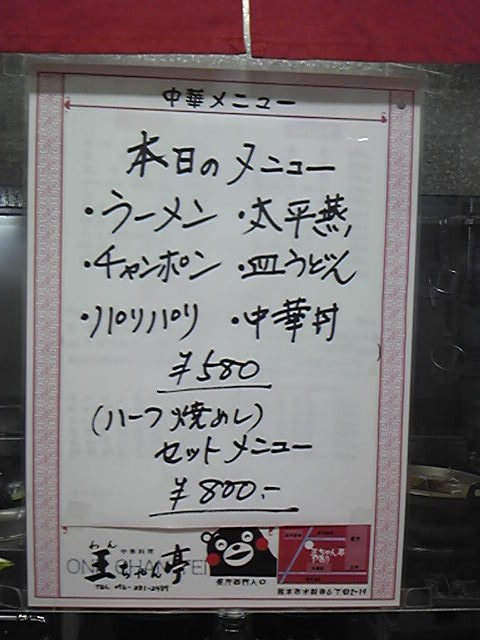 中華メニュー
本日のメニュー
・ラーメン ・太平燕
・チャンポン ・皿うどん
・パリパリ ・中華丼
¥580
(ハーフ焼めし)
セットメニュー
¥800:-
わん
中華料理
王ちゃん亭
県庁西門入口
王ちゃん亭
熊本市水前寺6丁目2-19